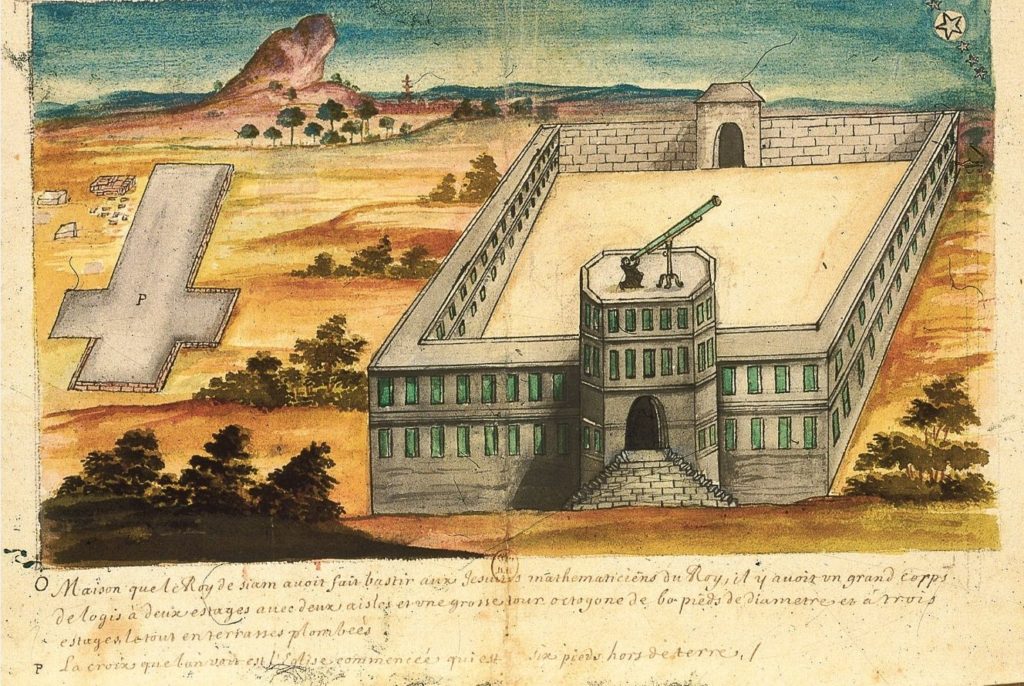 P
O Maison que le Roy de siam avoit fait bastir aux Jesuites mathematiciens du Roy, il y avoit un grand corps
de logis à deux estages avec deux aisles et une grosse tour octogone de 60 pieds de diametre et à trois
estages, le tout en terrasses plombées
P La croix que l'an voit est l'Eglise commencée qui est six pieds hors de terre. /